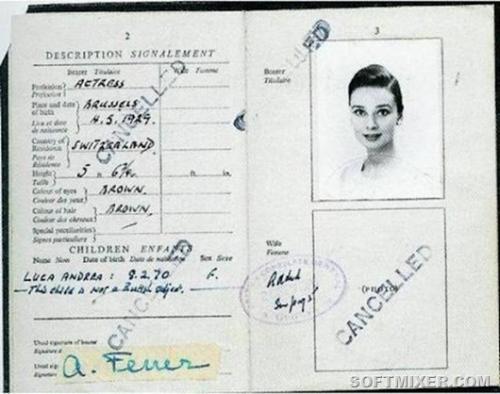 2
DESCRIPTION SIGNALEMENT
Bearer Titulaire Wife Femme
Profession
Profession
ACTRESS
Place and date
of birth
BRUSSELS
Lieu et date
de naissance
4.5.1929.
Country of
Residence
SWITZERLAND
Pays de
Résidence
Height
Taille
5 ft. in.
Colour of eyes
Couleur des yeux
BROWN.
Colour of hair
Couleur des cheveux
BROWN.
Special peculiarities
Signes particuliers
CHILDREN ENFANTS
Name Nom Date of birth Date de naissance Sex Sexe
LUCA ANDREA: 8.2.70
This child is not a British subject.
Usual signature of bearer
Signature d
Usual sig
Signature
A. Ferrer
CANCELLED
CANCELLED
3
Bearer
Titulaire
CANCELLED
Wife
Femme
(PHOTO)
CANCELLED
SOFTMIXER.COM